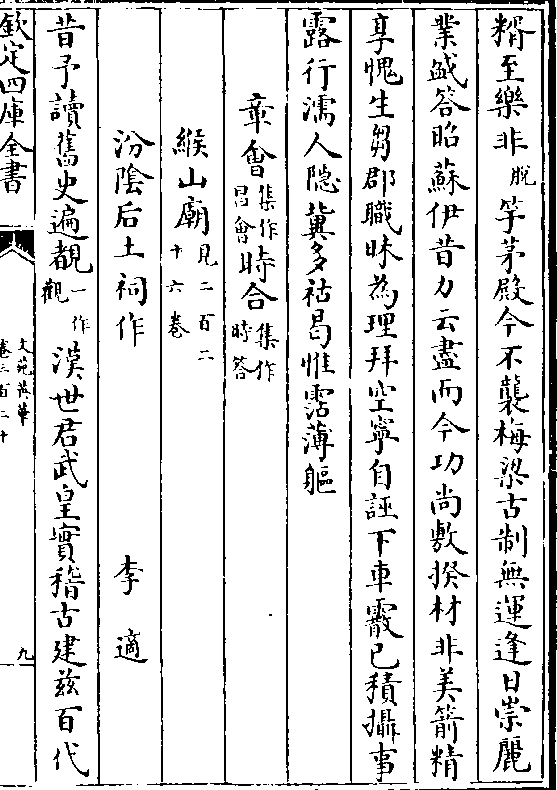 糈至樂非脱竽茅殿今不襲梅梁古制無運逢日崇麗
業緘答昭蘇伊昔力云盡而今功尚敷揆材非美箭精
享愧生芻郡職昧為理拜空寧自誣下車霰已積攝事
露行濡人隠冀多祜曷惟霑薄軀
章會集作昌會時合集作時答
緱山廟見二百二十六卷
汾陰后土祠作 李適
昔予讀舊史遍覩一作觀漢世君武皇實稽古建兹百代
欽定四庫全書
文苑英華
卷三百二十
九